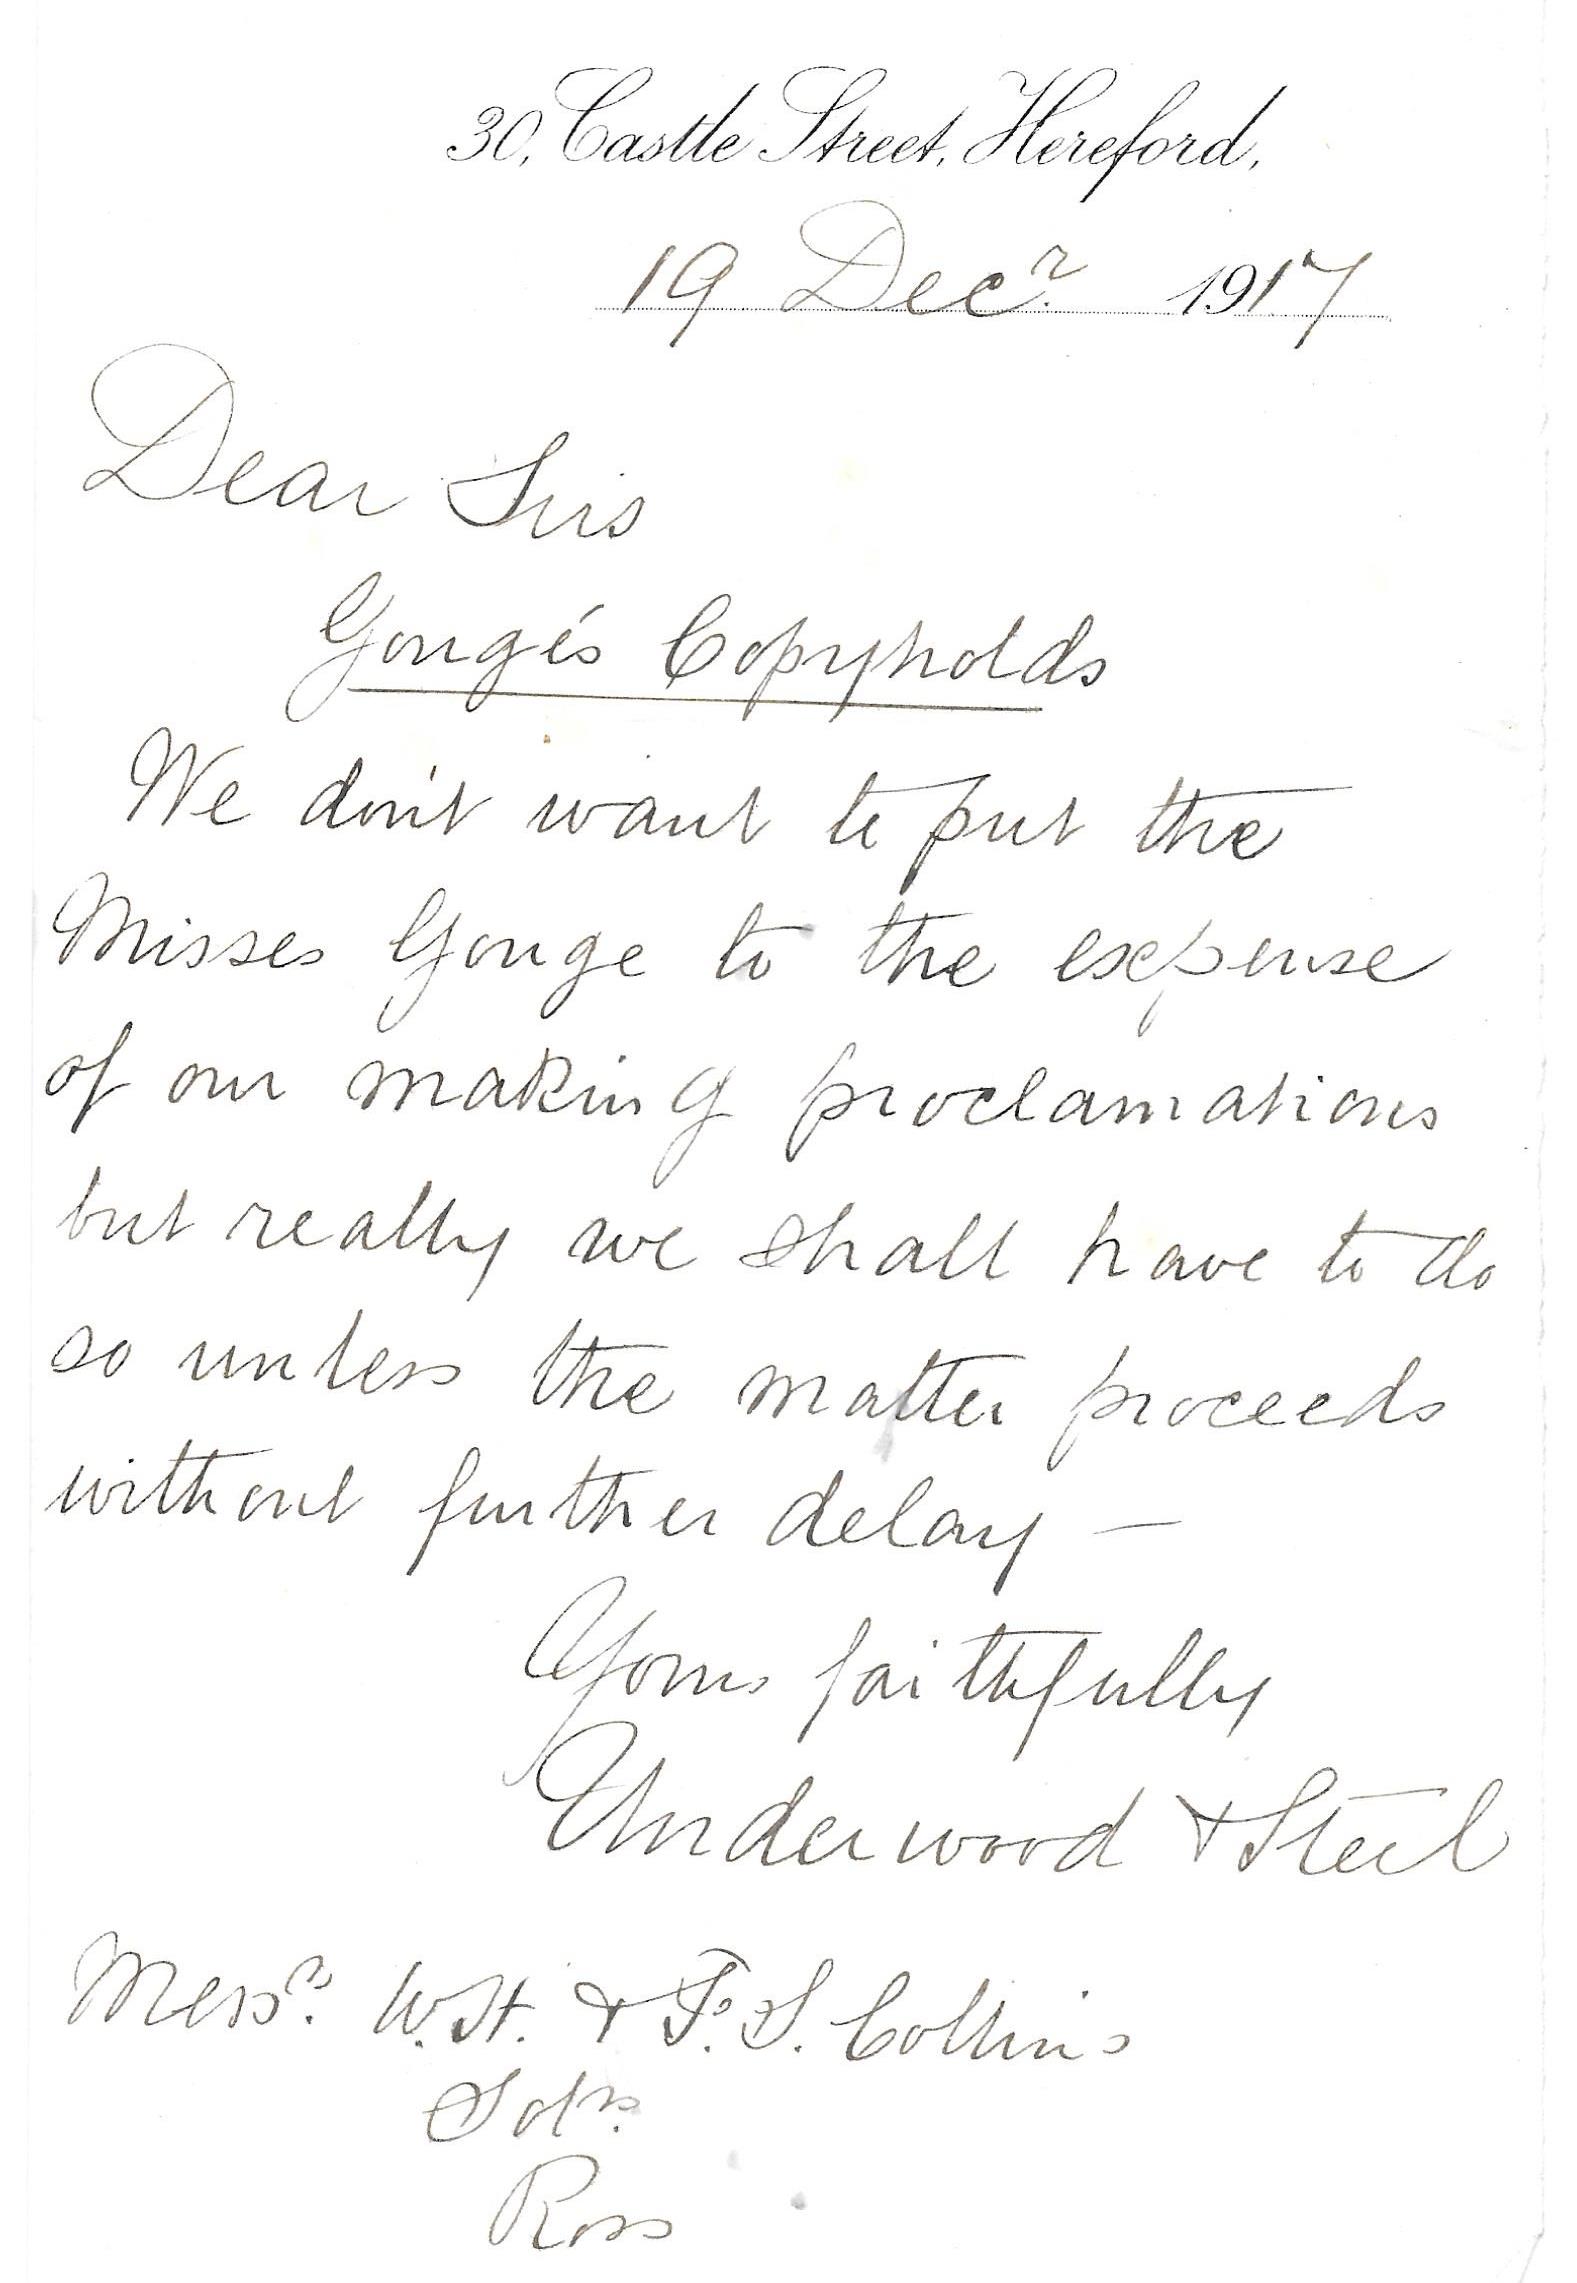 30, Castle Street, Hereford,
19 Decr. 1917
Dear Sirs
Gouge's Copyholds
We don't want to put the
Misses Gouge to the expense
of our making proclamations
but really we shall have to do
so unless the matter proceeds
without further delay —
Yours faithfully
Underwood & Steel
Messrs. W.H. & F. S. Collins
Solrs.
Ross